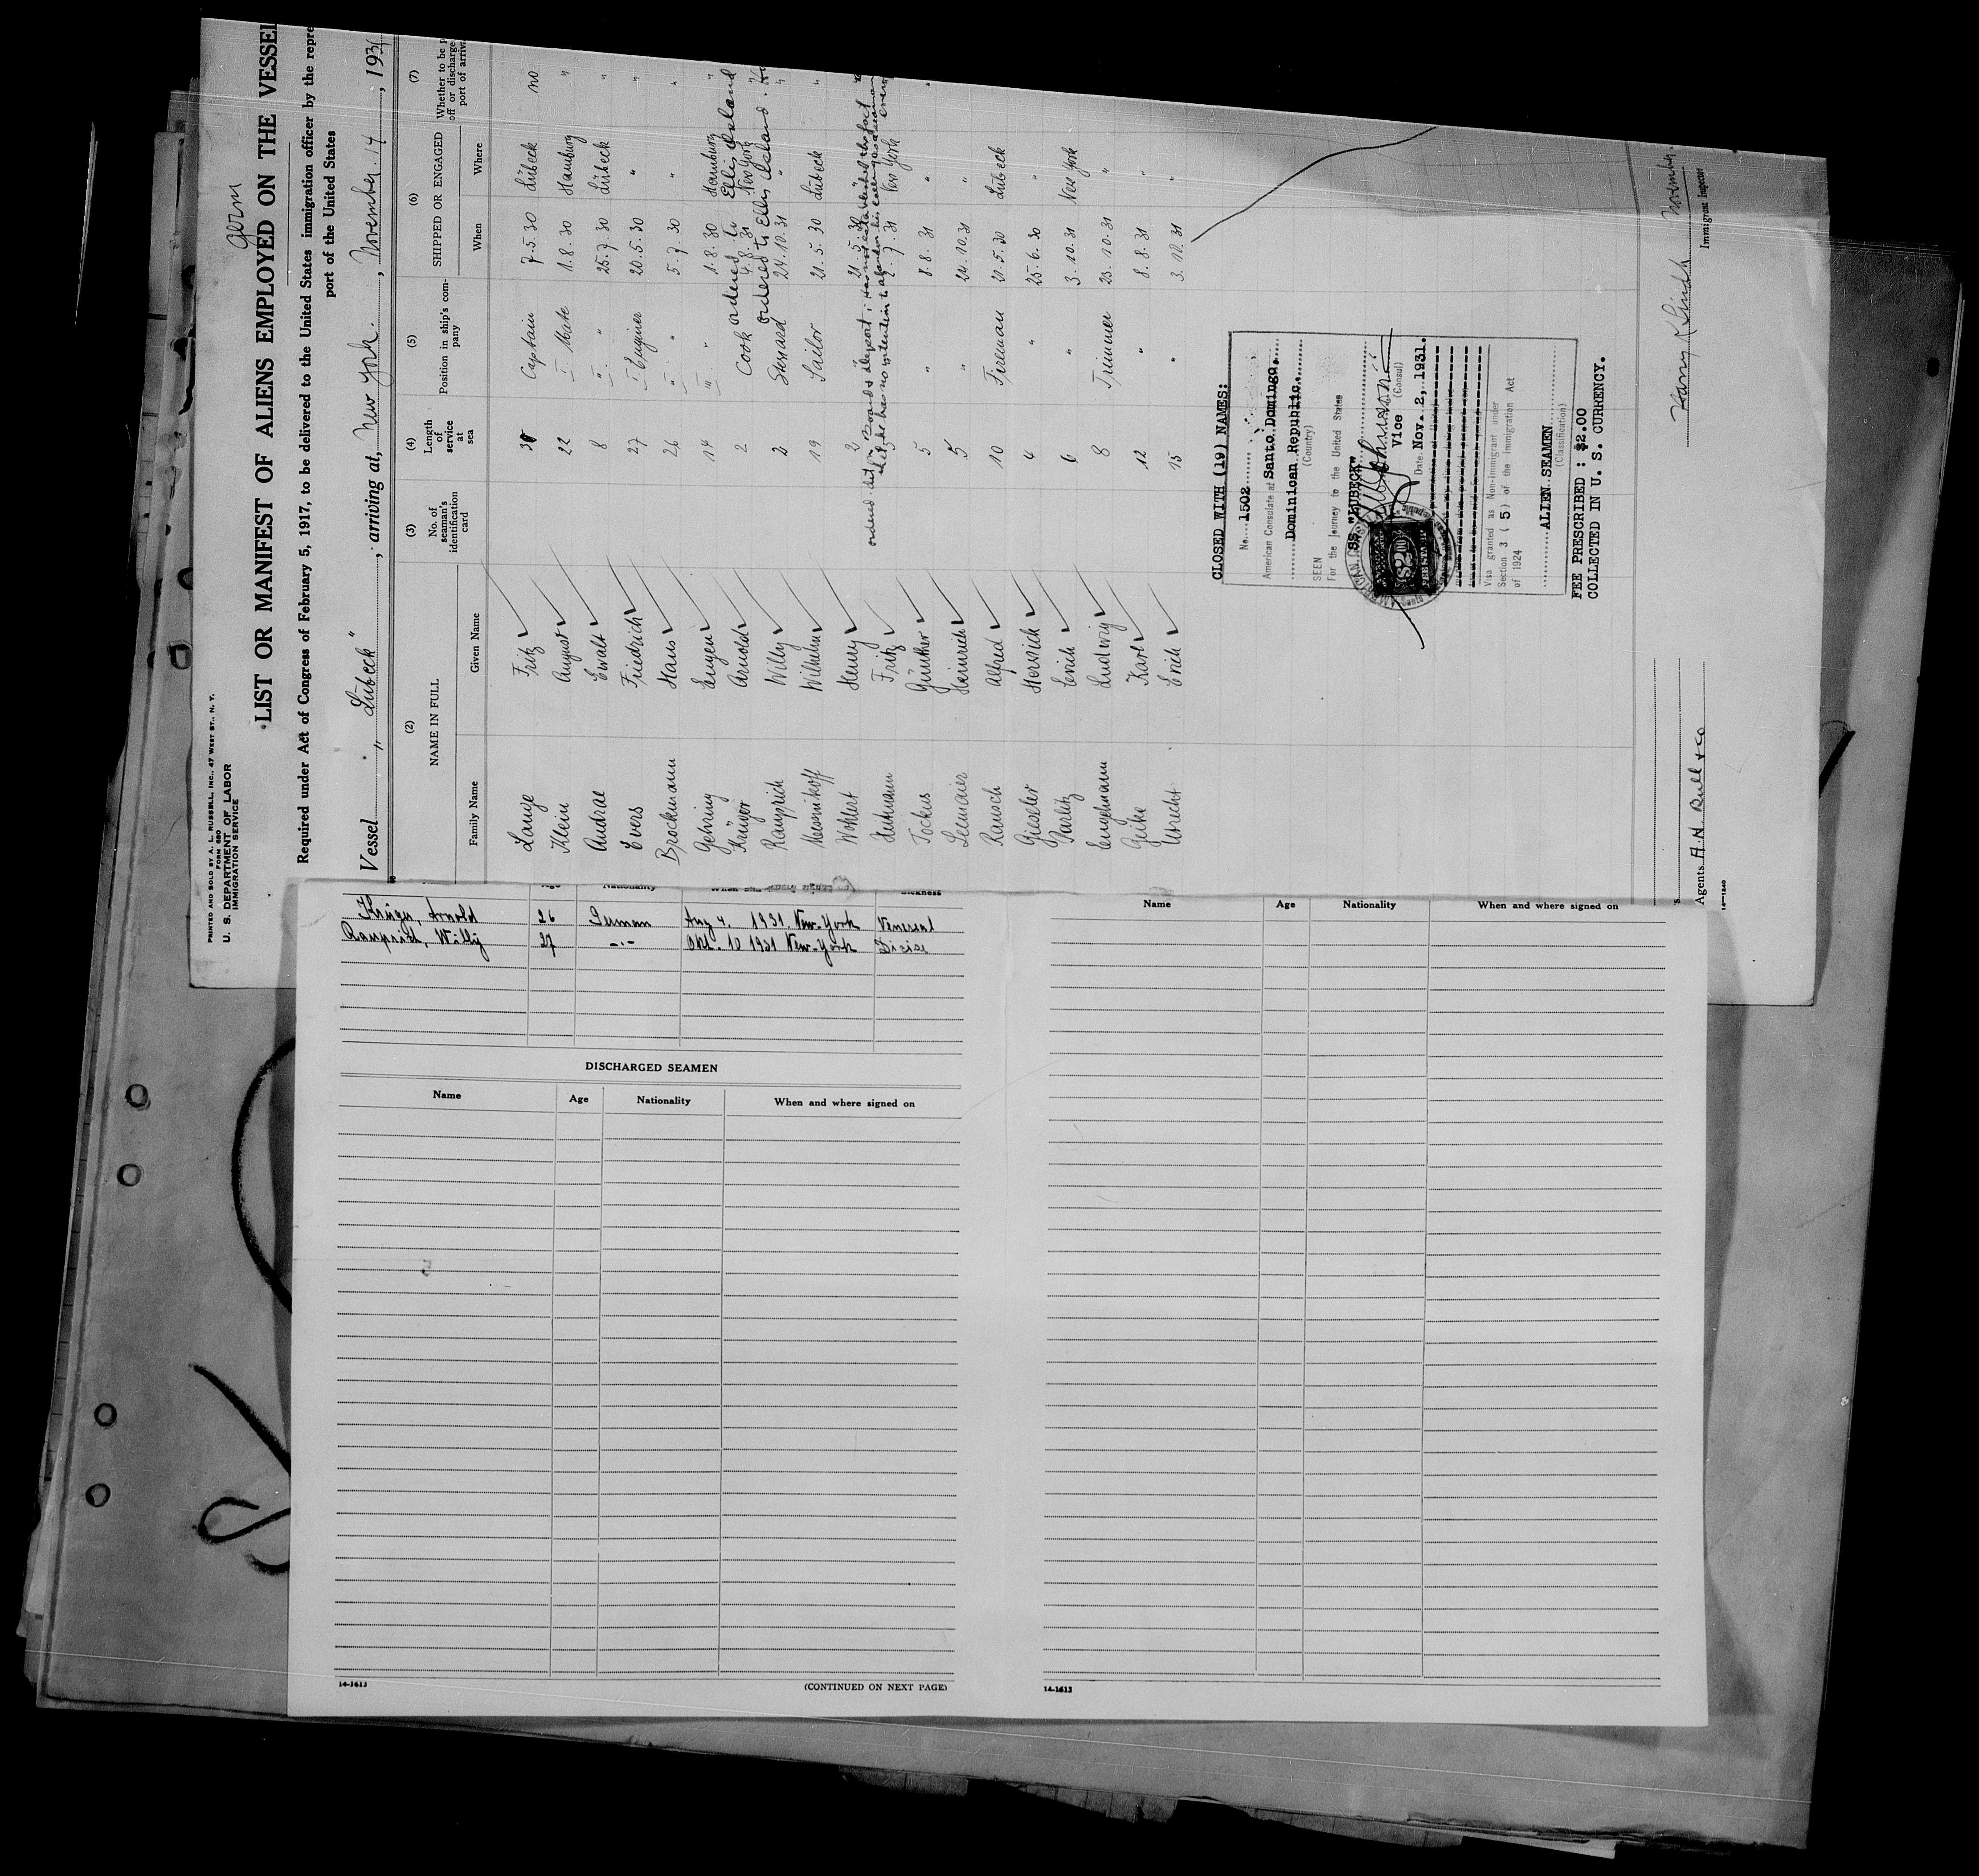 Germ
PRINTED AND SOLD BY A. L. RUSSELL, INC., 47 WEST ST., N. Y.
FORM 680
U. S. DEPARTMENT OF LABOR
IMMIGRATION SERVICE
LIST OR MANIFEST OF ALIENS EMPLOYED ON THE VESSEL
Required under Act of Congress of February 5, 1917, to be delivered to the United States immigration officer by the repre
port of the United States
Vessel "Lübeck", arriving at, New York., November. 14, 193
(2) (3) (4) (5) (6) (7)
NAME IN FULL No. of seaman's identification card Length of service at sea Position in ship's company SHIPPED OR ENGAGED Whether to be p off or discharge port of arriva
Family Name Given Name When Where
Lange Fritz 30 Captain 7.5.30 Lübeck no
Klein August 22 I Mate 1.8.30 Hamburg "
Andrae Ewalt 8 II " 25.7.30 Lübeck "
Evers Friedrich 27 I Enginer 20.5.30 " "
Brockmann Hans 26 II " 5.7.30 " "
Gehring Eugen 14 III " 1.8.30 Hamburg "
ordered to Ellis Island
Krüger Arnold 2 Cook 4.8.31 New York "
ordered to Ellis Island.
Rauprich Willy 2 Steward 24.10.31 " "
Wilhelm 19 Sailor 21.5.30 Lübeck "
Wohlert Henny 2 21.5.30
that he has no intention to abandon his calling as a seaman
Fritz 2.7.31 New York
Tockus Günther 5 " 8.8.31 " "
Heinrich 5 " 24.10.31 "
Rausch Alfred 10 Fireman 21.5.30 Lübeck
Gieseler 4 " 25.6.30 "
Parlitz Erich 6 " 3.10.31 New York
Engelmann Ludwig 8 Trimmer 23.10.31 "
Geike Karl 12 " 8.8.31 "
Utrecht Erich 15 " 3.10.31 "
CLOSED WITH (19) NAMES:
No. 1502
American Consulate at Santo Domingo,
Dominican Republic.
(Country)
SEEN
For the Journey to the United States
SS. "LUBECK"
Vice (Consul)
Date Nov. 2, 1931.
Visa granted as Non-Immigrant under
Section 3 (5) of the Immigration Act
of 1924
ALIEN SEAMEN
(Classification)
FEE PRESCRIBED : $2.00
COLLECTED IN U. S. CURRENCY.
November.
Immigrant Inspector
Agents A.H. Bull & Co
14-1240
Age Nationality Sickness
Krüger, Arnold 26 German Aug 4. 1931. New-York Veneral
Rauprich, Willy 27 -"- Okt. 10 1931 New-York
DISCHARGED SEAMEN
Name Age Nationality When and where signed on
14-1613
(CONTINUED ON NEXT PAGE)
Name Age Nationality When and where signed on
14-1613